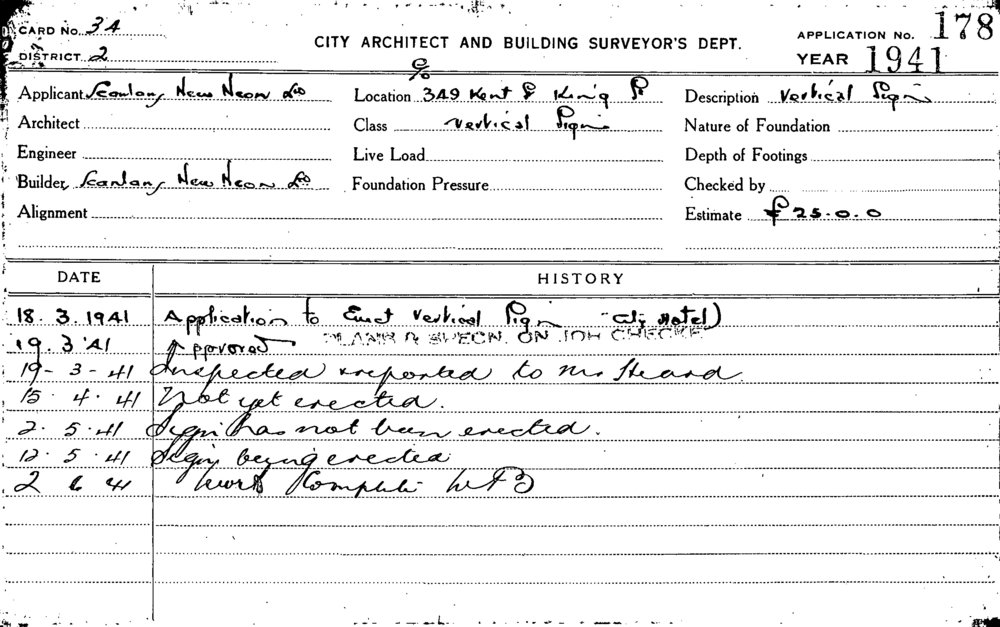 CARD No. 34
DISTRICT 2
CITY ARCHITECT AND BUILDING SURVEYOR'S DEPT.
APPLICATION No. 178
YEAR 1941
Applicant Scanlans New Neon Ld
Location 349 Kent St c/o King St
Description Vertical Sign
Architect
Class Vertical Sign
Nature of Foundation
Engineer
Live Load
Depth of Footings
Builder Scanlans New Neon Ld
Foundation Pressure
Checked by
Alignment
Estimate £25.0.0
DATE
HISTORY
18. 3. 1941 Application to Erect Vertical Sign (City Hotel)
19. 3 '41 Approved PLANS & SPECN. ON JOB CHECKED
19 - 3 - 41 Inspected & reported to Mr Heard
15. 4. 41 Not yet erected.
2. 5. 41 Sign has not been erected.
12. 5. 41 Sign being erected
2 6 41 Work Complete